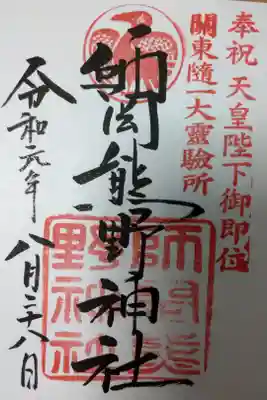 奉祝 天皇陛下御即位
關東隨一大靈驗所
師岡熊野神社
師岡熊
野神社
令和元年 八月二十八日